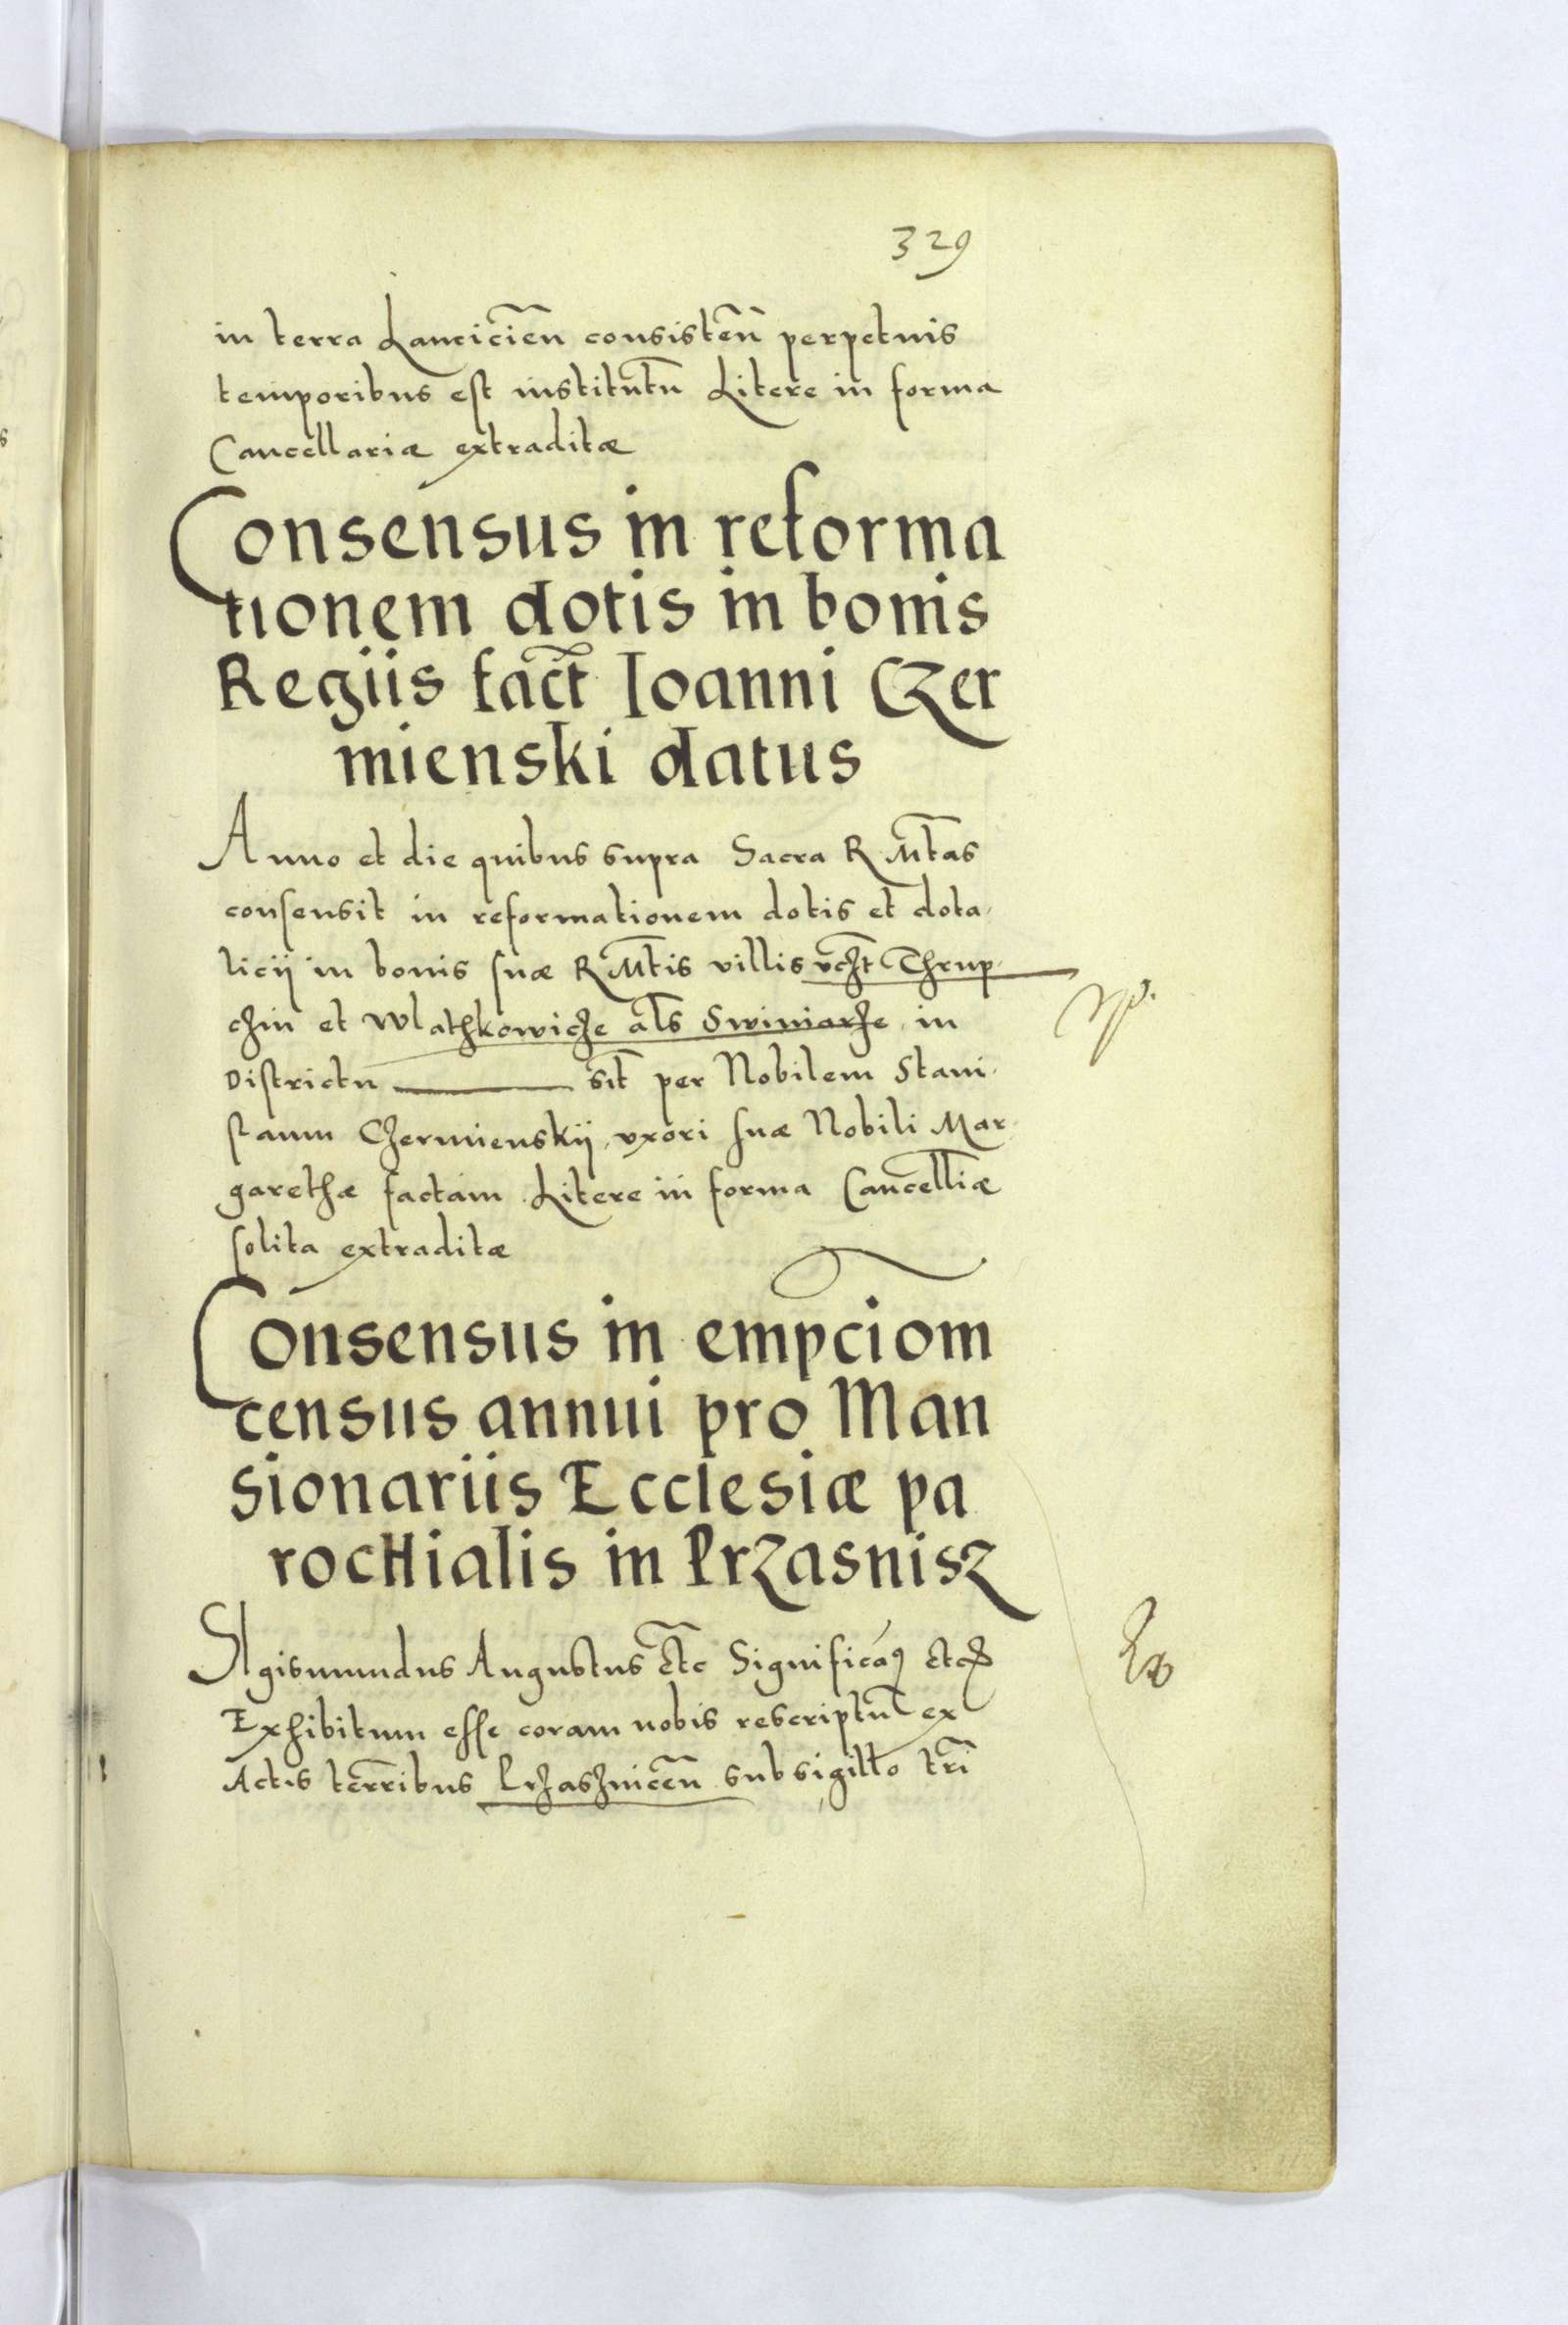 329
in terra Lanciciēn consistēn perpetuis
temporibus est institutū Litere in forma
Cancellariæ extraditæ
Consensus in reforma
tionem dotis in bonis
Regiis fact̃ Ioanni Czer
mienski datus
Anno et die quibus supra Sacra R Mt̃as
consensit in reformationem dotis et dota,
licij in bonis suæ R Mt̃is villis vczt̃ Thrup,
czin et Wlathkowicze al̃s Swiniarze in
Districtu ——— sit̃ per Nobilem Stani,
slaum Czermienskij uxori suæ Nobili Mar,
garethæ factam Litere in forma Cancell̃iæ
solita extraditæ
Consensus in empciom
census annui pro Man
sionariis Ecclesiæ pa
rochialis in Przasnisz
SIgismundus Augustus etc̃ Significam9 etc
Exhibitum esse coram nobis rescriptū ex
Actis terr̃ibus Przasznicēn sub sigillo tr̃i